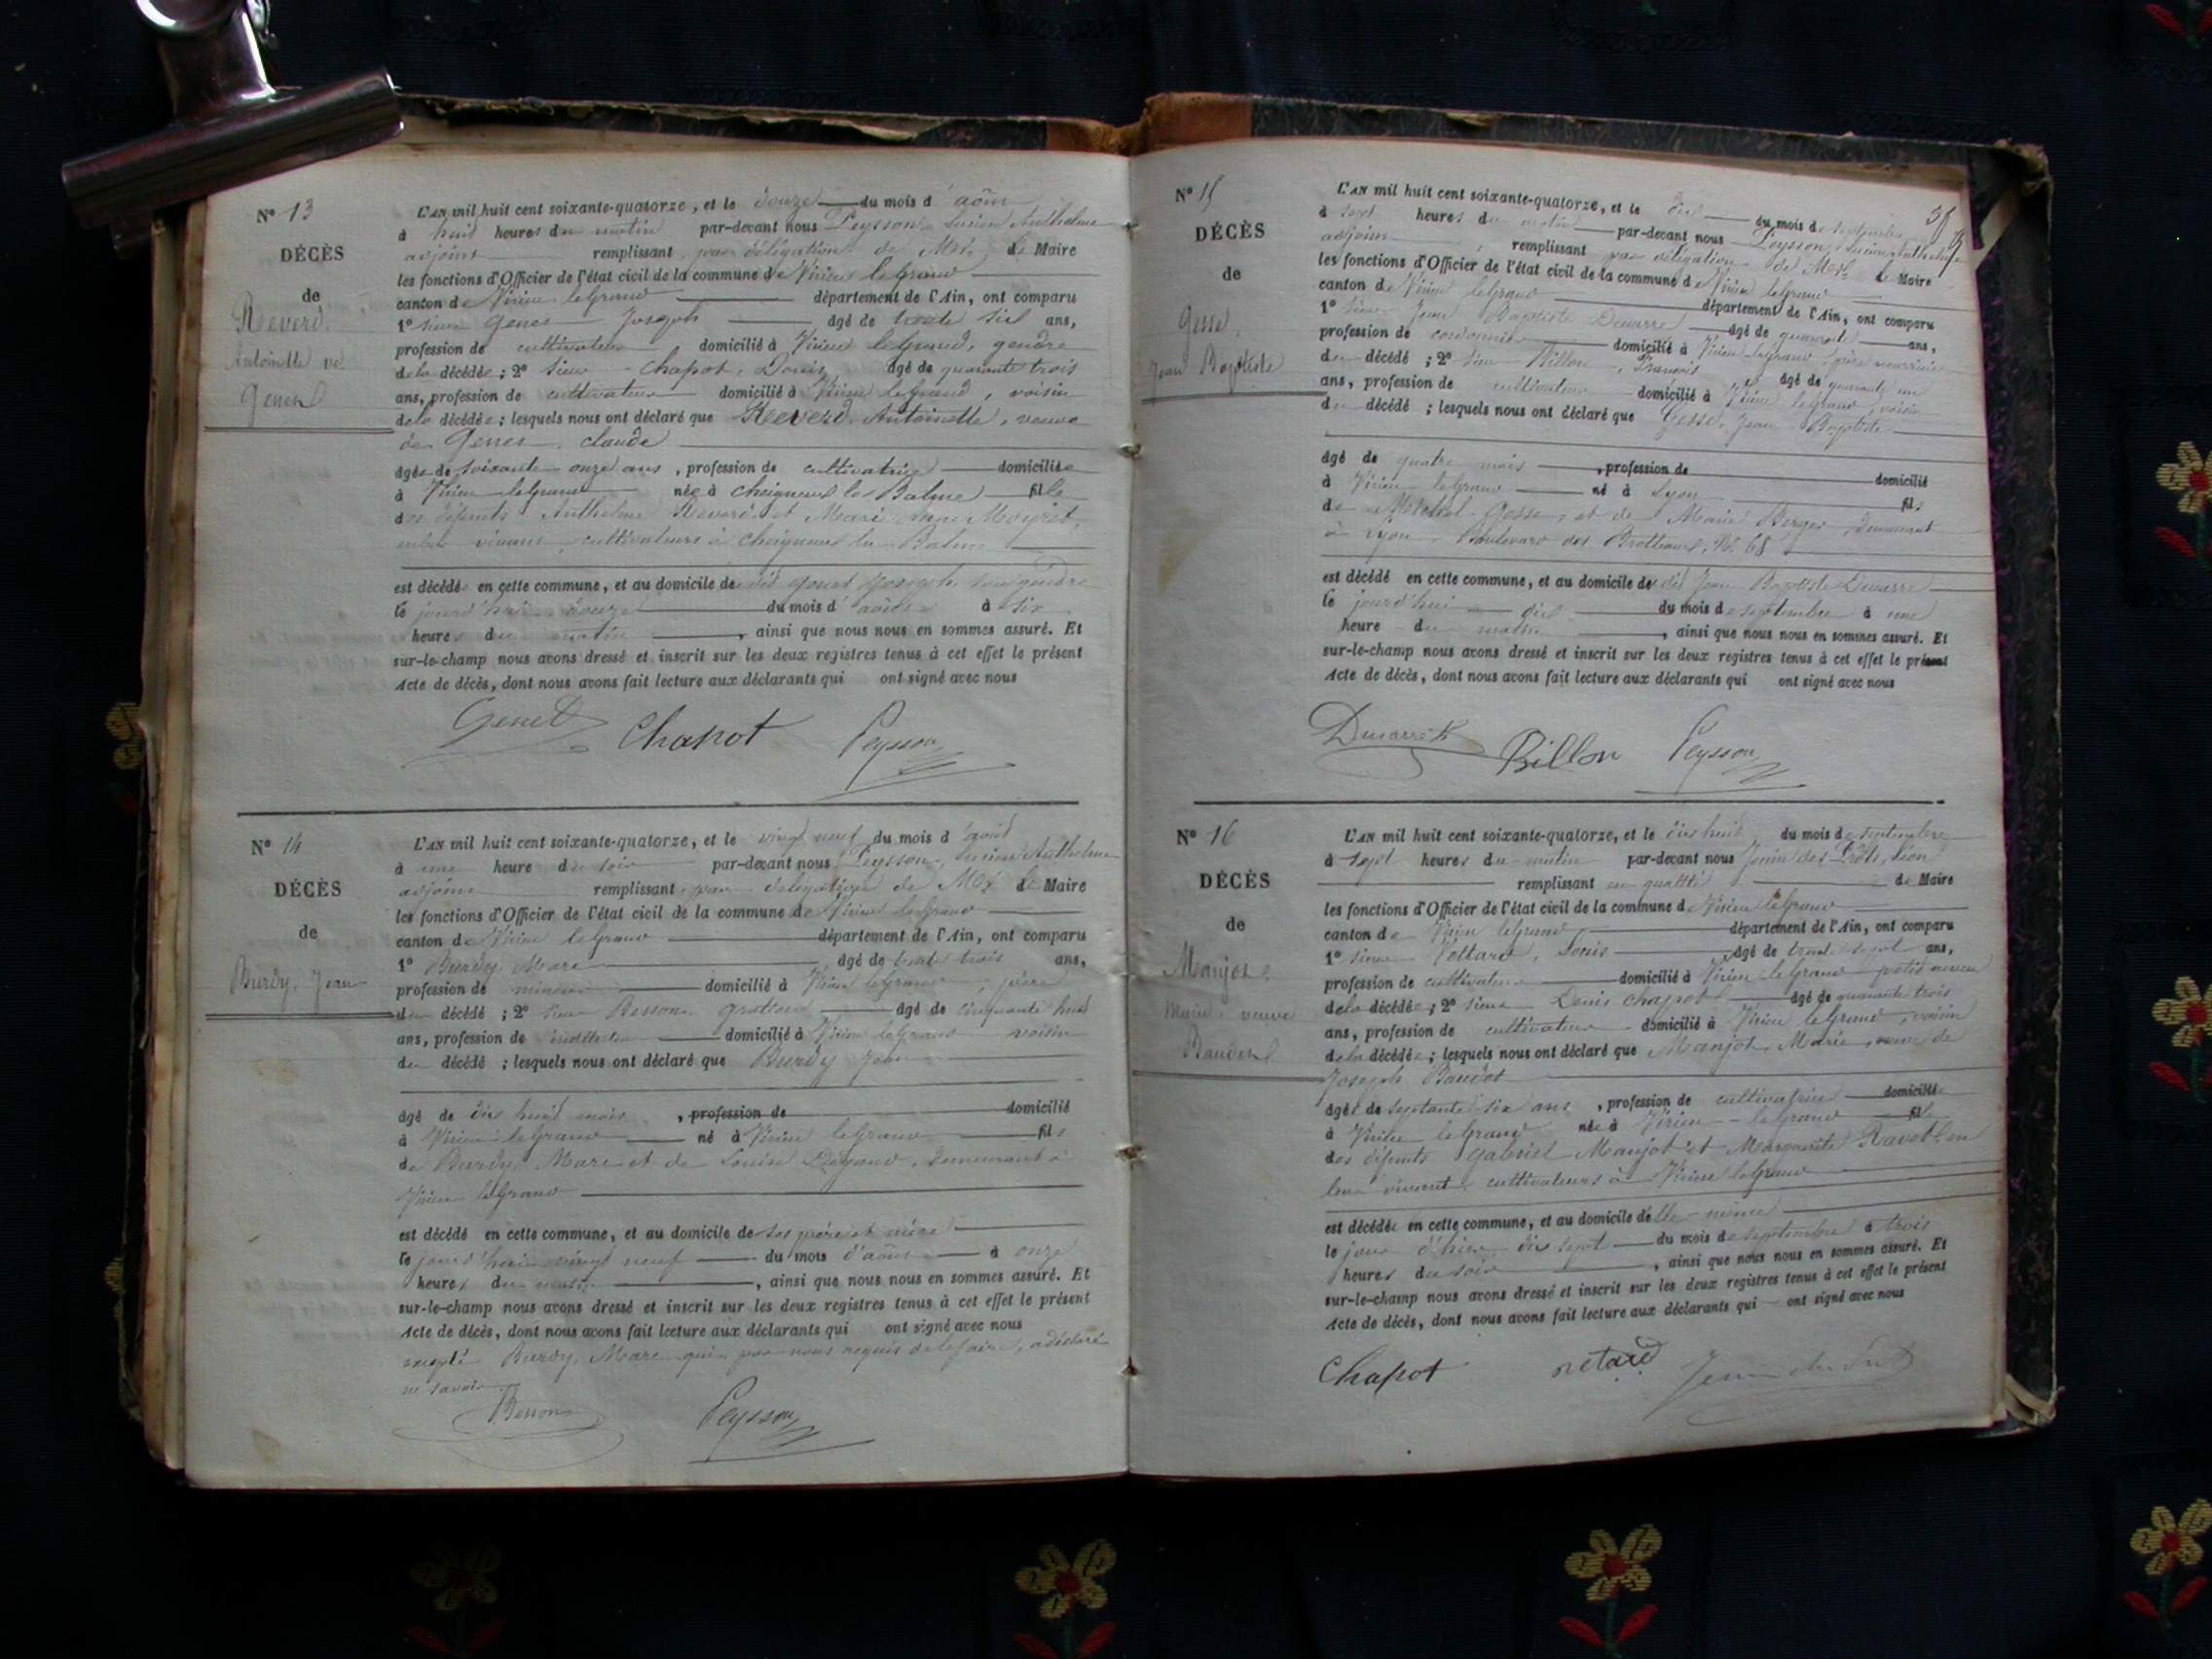 N° 13
DÉCÈS
de
Reverd
Antoinette ve
Genet
L'AN mil huit cent soixante-quatorze, et le douze du mois d'août
à huit heures du matin par-devant nous Peysson, Lucien Anthelme
adjoint remplissant par délégation de Mr le Maire
les fonctions d'Officier de l'état civil de la commune de Virieu le Grand
canton de Virieu le Grand département de l'Ain, ont comparu
1° sieur Genet Joseph âgé de trente six ans,
profession de cultivateur domicilié à Virieu le Grand, gendre
de la décédée; 2° sieur Chapot, Denis âgé de quarante trois
ans, profession de cultivateur domicilié à Virieu le Grand, voisin
de la décédée; lesquels nous ont déclaré que Reverd Antoinette, veuve
de Genet Claude
âgée de soixante onze ans, profession de cultivatrice domiciliée
à Virieu le Grand née à Cheigneux la Balme fille
des défunts Anthelme Reverd et Marie Anne
vivant cultivateurs à Cheigneux la Balme
est décédée en cette commune, et au domicile de dit Genet Joseph son gendre
le jourd'hui douze du mois d'août à six
heures du matin, ainsi que nous nous en sommes assuré. Et
sur-le-champ nous avons dressé et inscrit sur les deux registres tenus à cet effet le présent
Acte de décès, dont nous avons fait lecture aux déclarants qui ont signé avec nous
Genet Chapot Peysson
N° 14
DÉCÈS
de
Burdy, Jean
L'AN mil huit cent soixante-quatorze, et le vingt neuf du mois d'août
à une heure du soir par-devant nous Peysson, Lucien Anthelme
adjoint remplissant par délégation de Mr le Maire
les fonctions d'Officier de l'état civil de la commune de Virieu le Grand
canton de Virieu le Grand département de l'Ain, ont comparu
1° Burdy Marc âgé de trente trois ans,
profession de mineur domicilié à Virieu le Grand, père
du décédé; 2° sieur Besson âgé de cinquante huit
ans, profession de domicilié à Virieu le Grand voisin
du décédé; lesquels nous ont déclaré que Burdy Jean
âgé de dix huit mois, profession de domicilié
à Virieu le Grand né à Virieu le Grand fils
de Burdy, Marc et de Louise demeurant à
Virieu le Grand
est décédé en cette commune, et au domicile de ses père et mère
le jourd'hui vingt neuf du mois d'août à onze
heures du matin, ainsi que nous nous en sommes assuré. Et
sur-le-champ nous avons dressé et inscrit sur les deux registres tenus à cet effet le présent
Acte de décès, dont nous avons fait lecture aux déclarants qui ont signé avec nous
excepté Burdy, Marc qui par nous requis de le faire, a déclaré
ne savoir
Besson Peysson
N° 15
DÉCÈS
de
Gesse,
Jean Baptiste
L'AN mil huit cent soixante-quatorze, et le dix du mois de septembre
à sept heures du matin par-devant nous Peysson, Lucien Anthelme
adjoint remplissant par délégation de Mr le Maire
les fonctions d'Officier de l'état civil de la commune de Virieu le Grand
canton de Virieu le Grand département de l'Ain, ont comparu
1° sieur Jean Baptiste Ducarre âgé de quarante ans,
profession de cordonnier domicilié à Virieu le Grand père nourricier
du décédé; 2° sieur Billon, François âgé de quarante un
ans, profession de cultivateur domicilié à Virieu le Grand, voisin
du décédé; lesquels nous ont déclaré que Gesse, Jean Baptiste
âgé de quatre mois, profession de domicilié
à Virieu le Grand né à Lyon fils
de Gesse, et de Marie Berger, demeurant
à Lyon, Boulevard des Brotteaux, No 68
est décédé en cette commune, et au domicile de dit Jean Baptiste Ducarre
le jourd'hui dix du mois de septembre à une
heure du matin, ainsi que nous nous en sommes assuré. Et
sur-le-champ nous avons dressé et inscrit sur les deux registres tenus à cet effet le présent
Acte de décès, dont nous avons fait lecture aux déclarants qui ont signé avec nous
Billon Peysson
N° 16
DÉCÈS
de
Manjot,
Marie, veuve
Baudet
L'AN mil huit cent soixante-quatorze, et le dix huit du mois de septembre
à sept heures du matin par-devant nous Jenin des Prôts, Léon
remplissant en qualité de Maire
les fonctions d'Officier de l'état civil de la commune de Virieu le Grand
canton de Virieu le Grand département de l'Ain, ont comparu
1° sieur Louis âgé de trente sept ans,
profession de cultivateur domicilié à Virieu le Grand petit neveu
de la décédée; 2° sieur Denis Chapot âgé de quarante trois
ans, profession de cultivateur domicilié à Virieu le Grand, voisin
de la décédée; lesquels nous ont déclaré que Manjot, Marie, veuve de
Joseph Baudet
âgée de septante six ans, profession de cultivatrice domiciliée
à Virieu le Grand née à Virieu le Grand fille
des défunts Gabriel Manjot et Marguerite Ravet, en
leur vivant cultivateurs à Virieu le Grand
est décédée en cette commune, et au domicile d'elle-même
le jour d'hier, dix sept du mois de septembre à trois
heures du soir, ainsi que nous nous en sommes assuré. Et
sur-le-champ nous avons dressé et inscrit sur les deux registres tenus à cet effet le présent
Acte de décès, dont nous avons fait lecture aux déclarants qui ont signé avec nous
Chapot